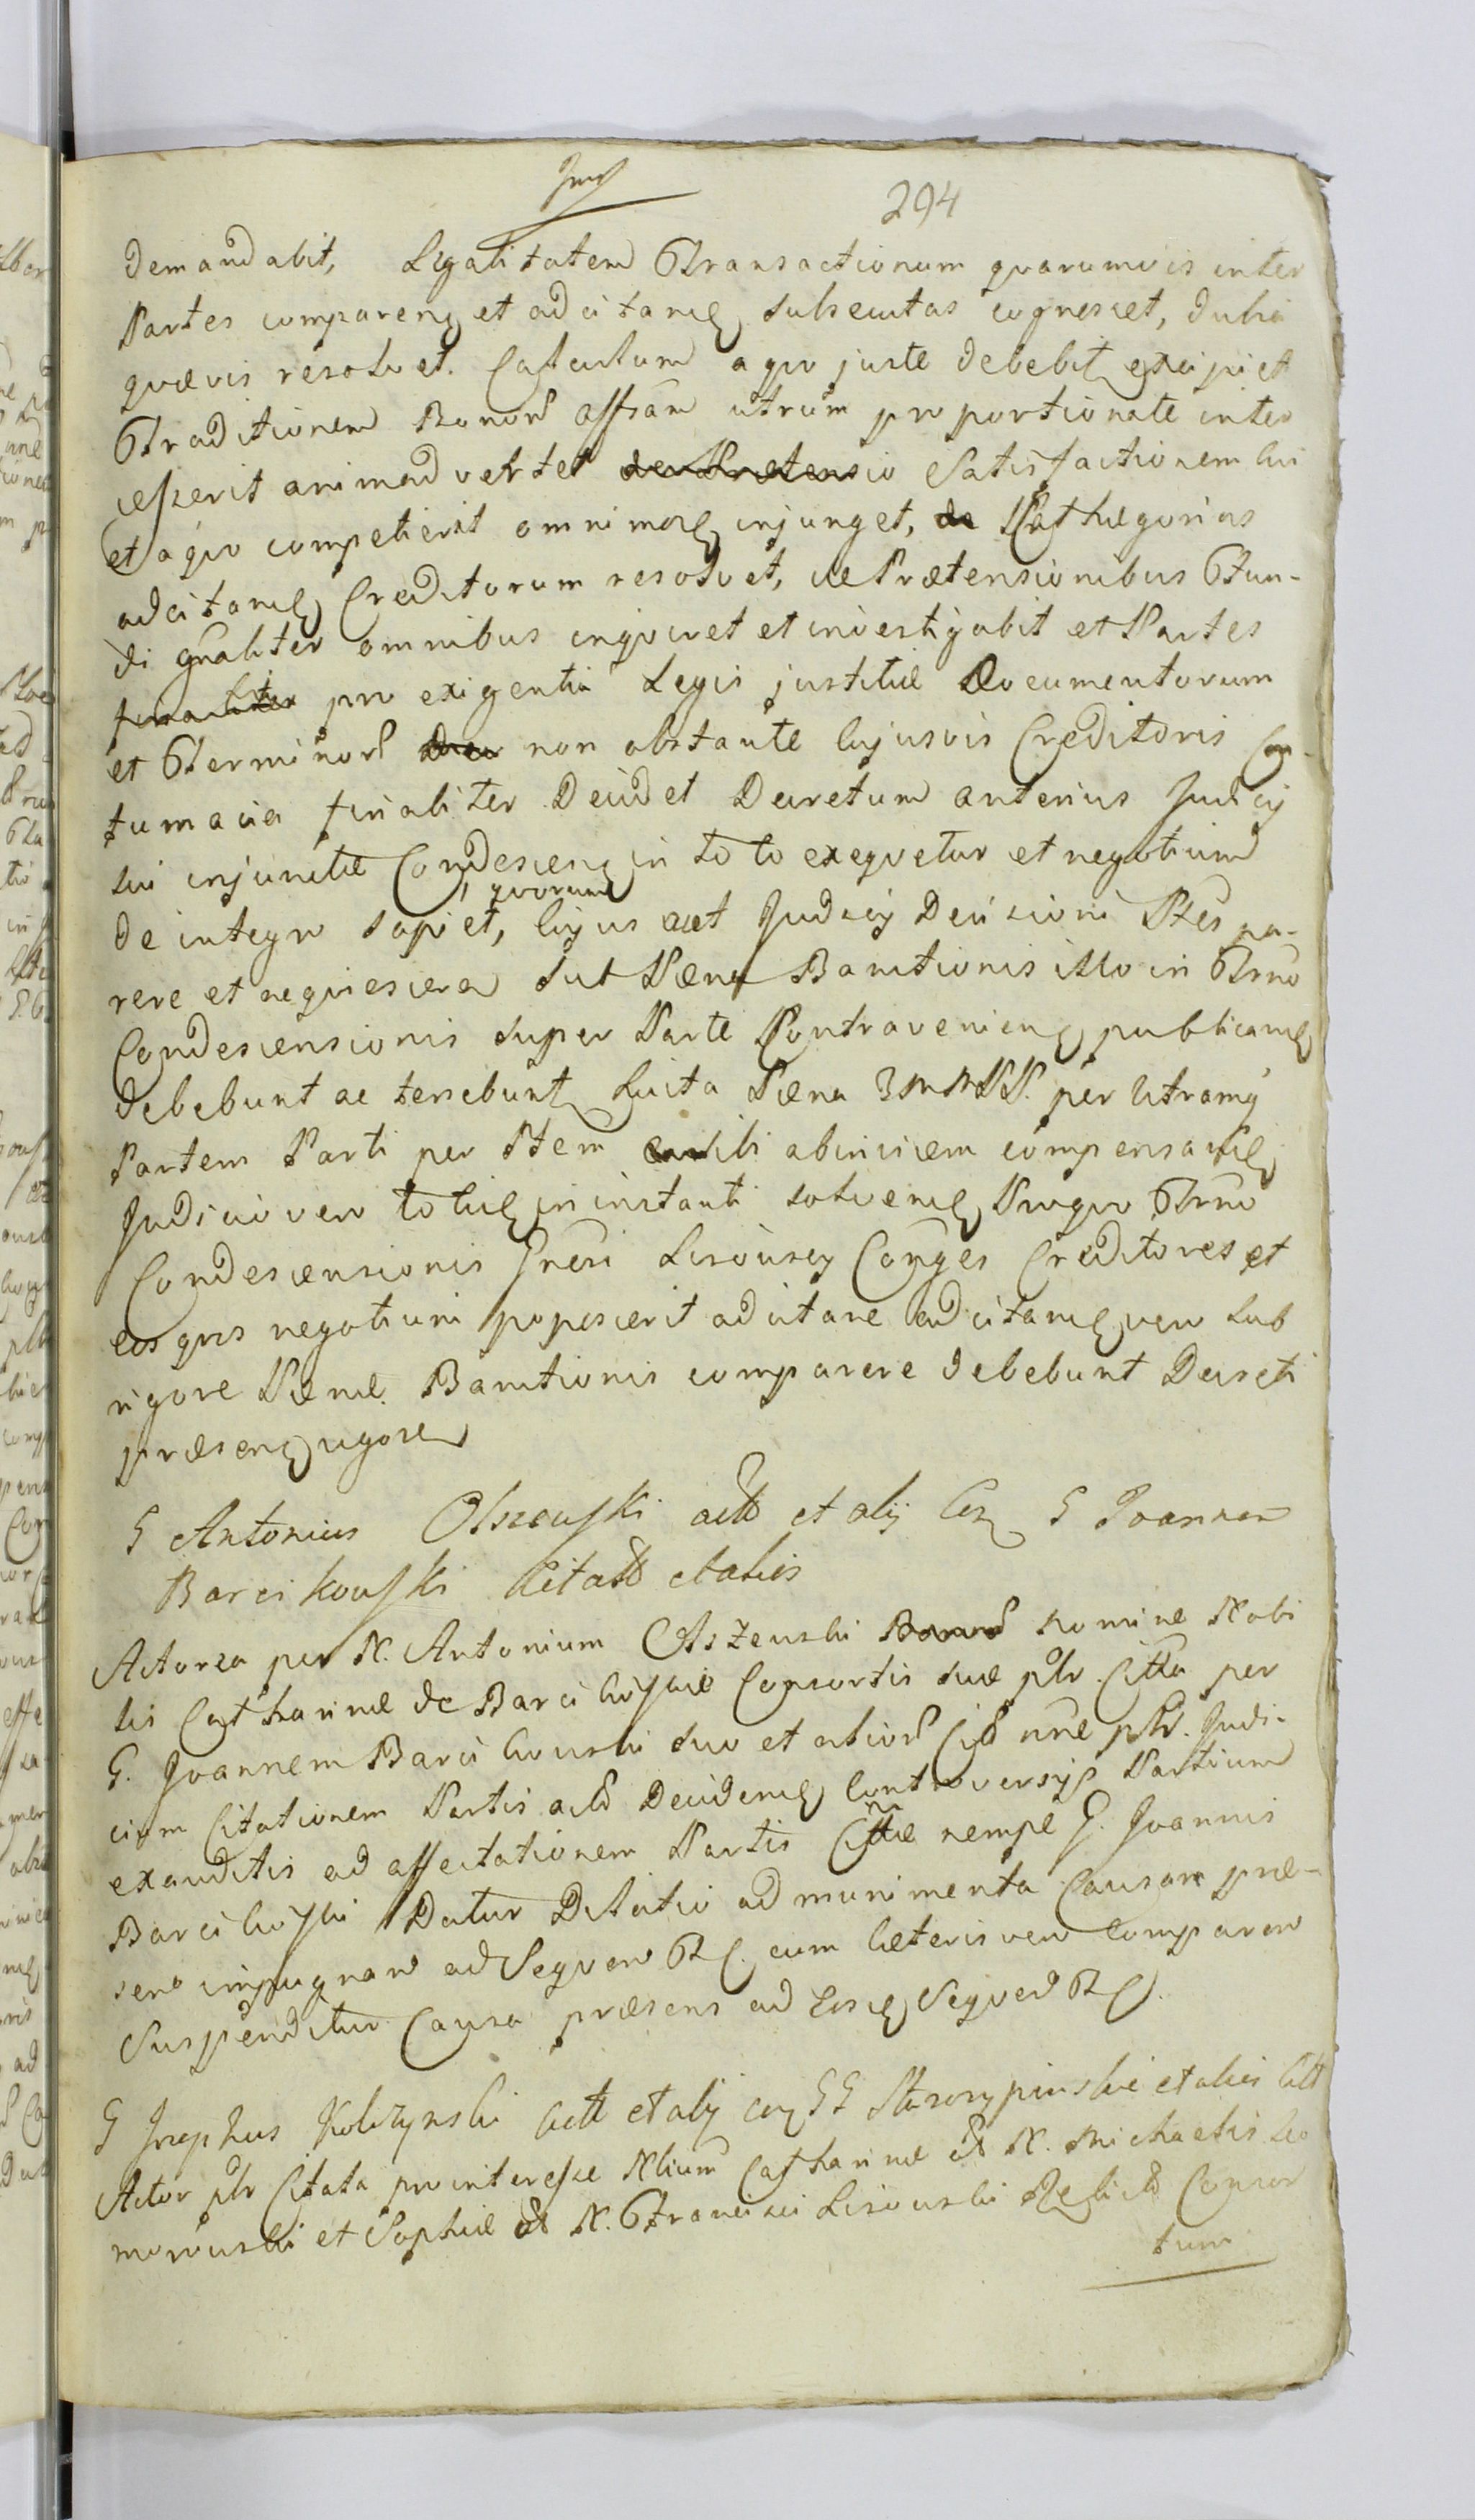 294
demandabit, Legalitatem Transactionum quarumvis inter
Partes comparen et adcitand subsecutas cognoscet, dubia
quævis resolvet. Calculum a quo juste debebit excipiet
Traditionem Bonor utrum proportionate inter
cesserit animadvertet Satisfactionem cui
et a quo competierit omnimod injunget, Cathegorias
adcitand Creditorum resolvet, de Prætensionibus Fun-
di gnaliter omnibus inquiret et investigabit et Partes
pro exigentia Legis justitiæ Documentorum
et Terminor non obstante cujusvis Creditoris Con-
tumacia finaliter Decidet Decretum anterius Judicij
sui injunctæ Condescen in toto exequetur et negotium
quorum
de integro sopiet, cujus Judicij Decisioni Ptes pa-
rere et acquiescere sub Pæna Banitionis illo in Trno
Condescensionis super Parte Contravenien publicand
debebunt ac tenebunt Luita Pæna 3 M PP. per utramq
Partem Parti per Ptem sibi abinvicem compensand
Judicio vero totie in instanti solvend Proquo Trno
Condescensionis Gnesi Lisowscy Conges Creditores et
eos quos negotium poposcerit adcitare adcitand vero sub
rigore Pænæ Banitionis comparere debebunt Decreti
præsen vigore
G Antonius Olszewski actt et alij Cum G Joannem
Barcikowski Citatt et alios
Actorea per N. Antonium Olszewski nomine Nobi
lis Catharinæ de Barcikowskie Consortis suæ plr Citta per
G. Joannem Barcikowski suo et alior nne plr. Judi-
cium Citationem Partis act Deciden Controversijs Partium
exauditis ad affectationem Partis Cittæ nempe G. Joannis
Barcikowski Datur Dilatio ad munimenta Causam præ-
sen impugnan ad Sequen R C. cum Cæteris vero Comparen
Suspenditur Causa præsens ad Eosd Sequen R C.
G Josephus Kobrzynski actt et alij cum GG Starorypinskie et alios Citt
Actor plr Citata pro interesse Nlium Catharinæ N. Michaelis
et Sophiæ N. Francisci Lisowski Relictt Consor
tum